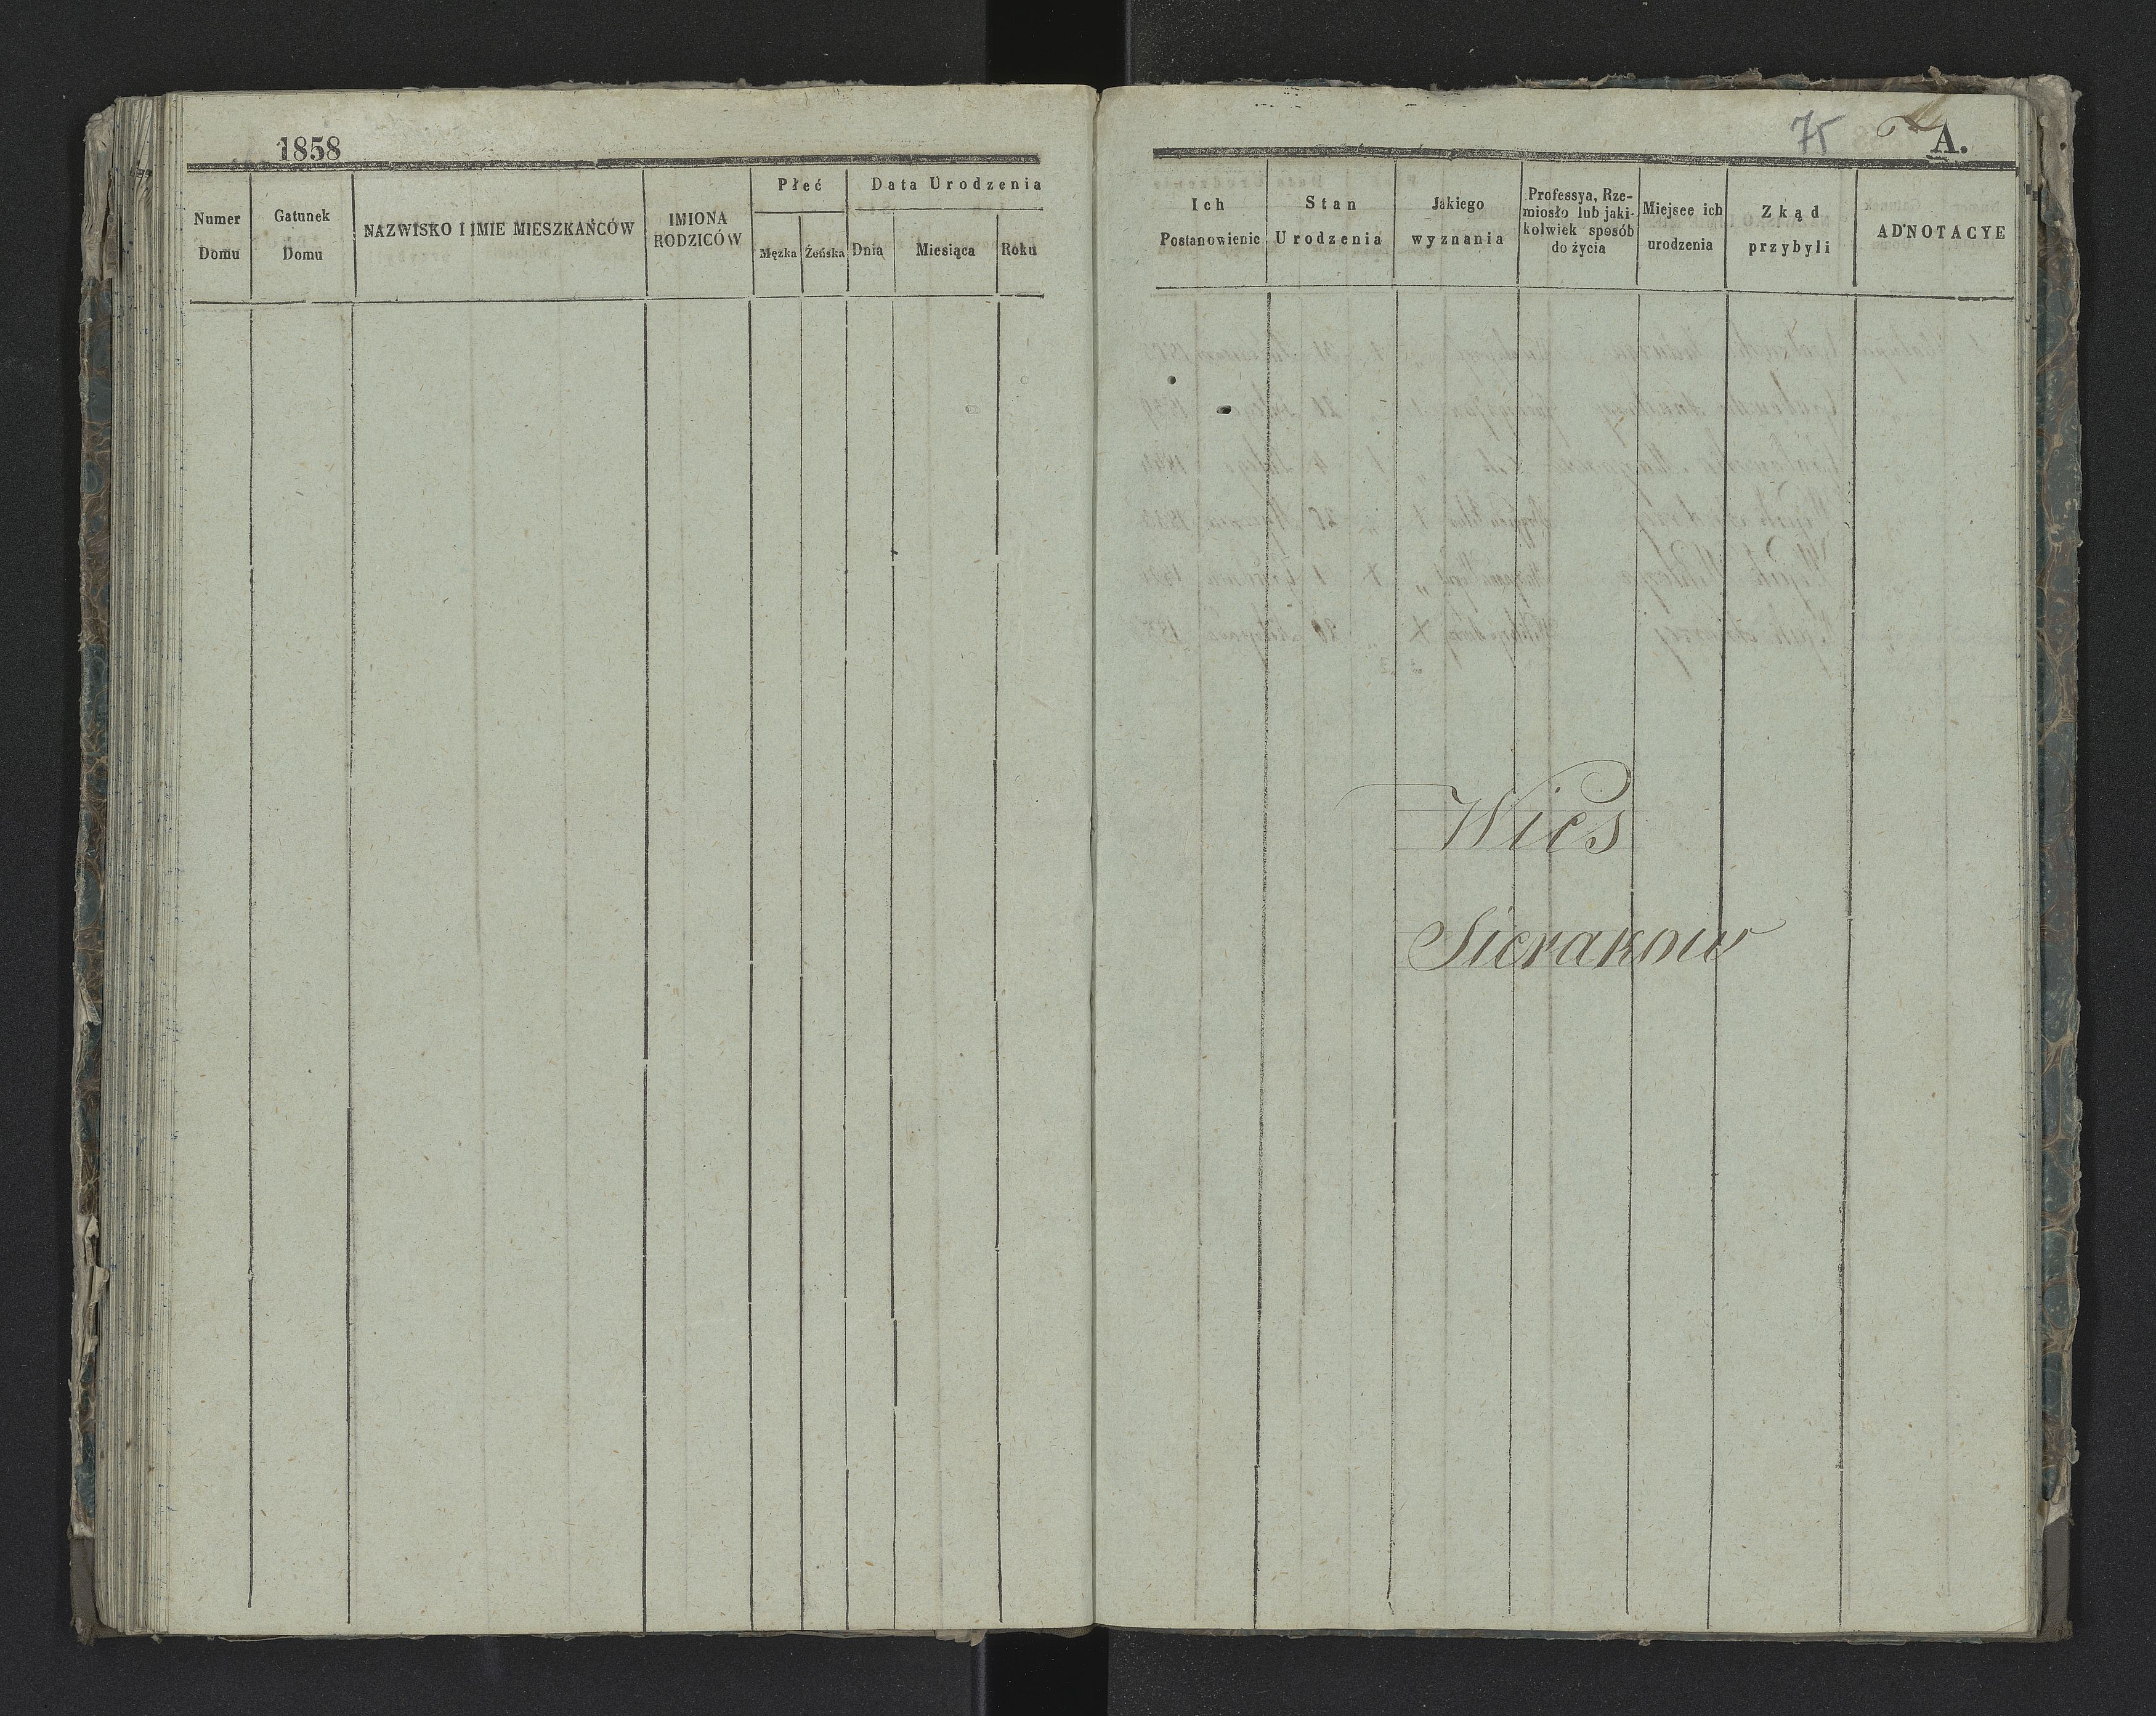 1858
Numer Domu
Gatunek Domu
NAZWISKO I IMIE MIESZKAŃCÓW
IMIONA RODZICÓW
Płeć
Męzka
Żeńska
Data Urodzenia
Dnia
Miesiąca
Roku
75
A.
Ich Postanowienie
Stan Urodzenia
Jakiego wyznania
Professya, Rze-
miosło lub jaki-
kolwiek sposób
do życia
Miejsce ich urodzenia
Zkąd przybyli
ADNOTACYE
Wies
Sierakow